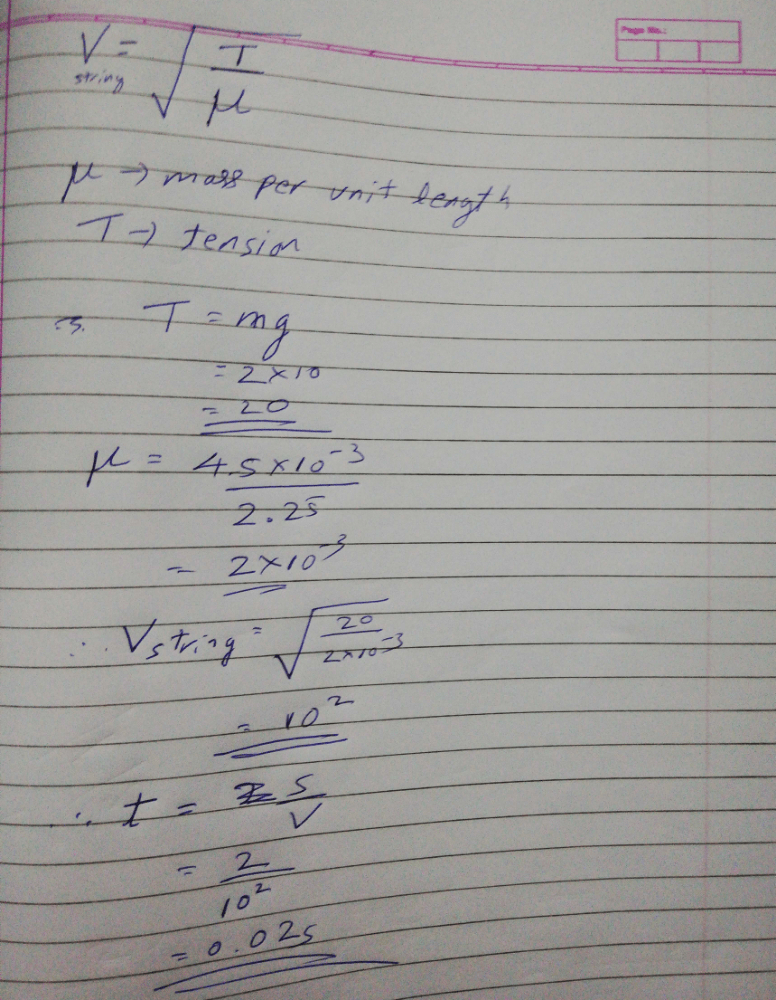 Page No.:
V string = √(T/μ)
μ → mass per unit length
T → tension
∴ T = mg
= 2×10
= 20
μ = 4.5×10⁻³ / 2.25
= 2×10⁻³
∴ Vstring = √(20 / 2×10⁻³)
= 10²
∴ t = s/v
= 2/10²
= 0.02s